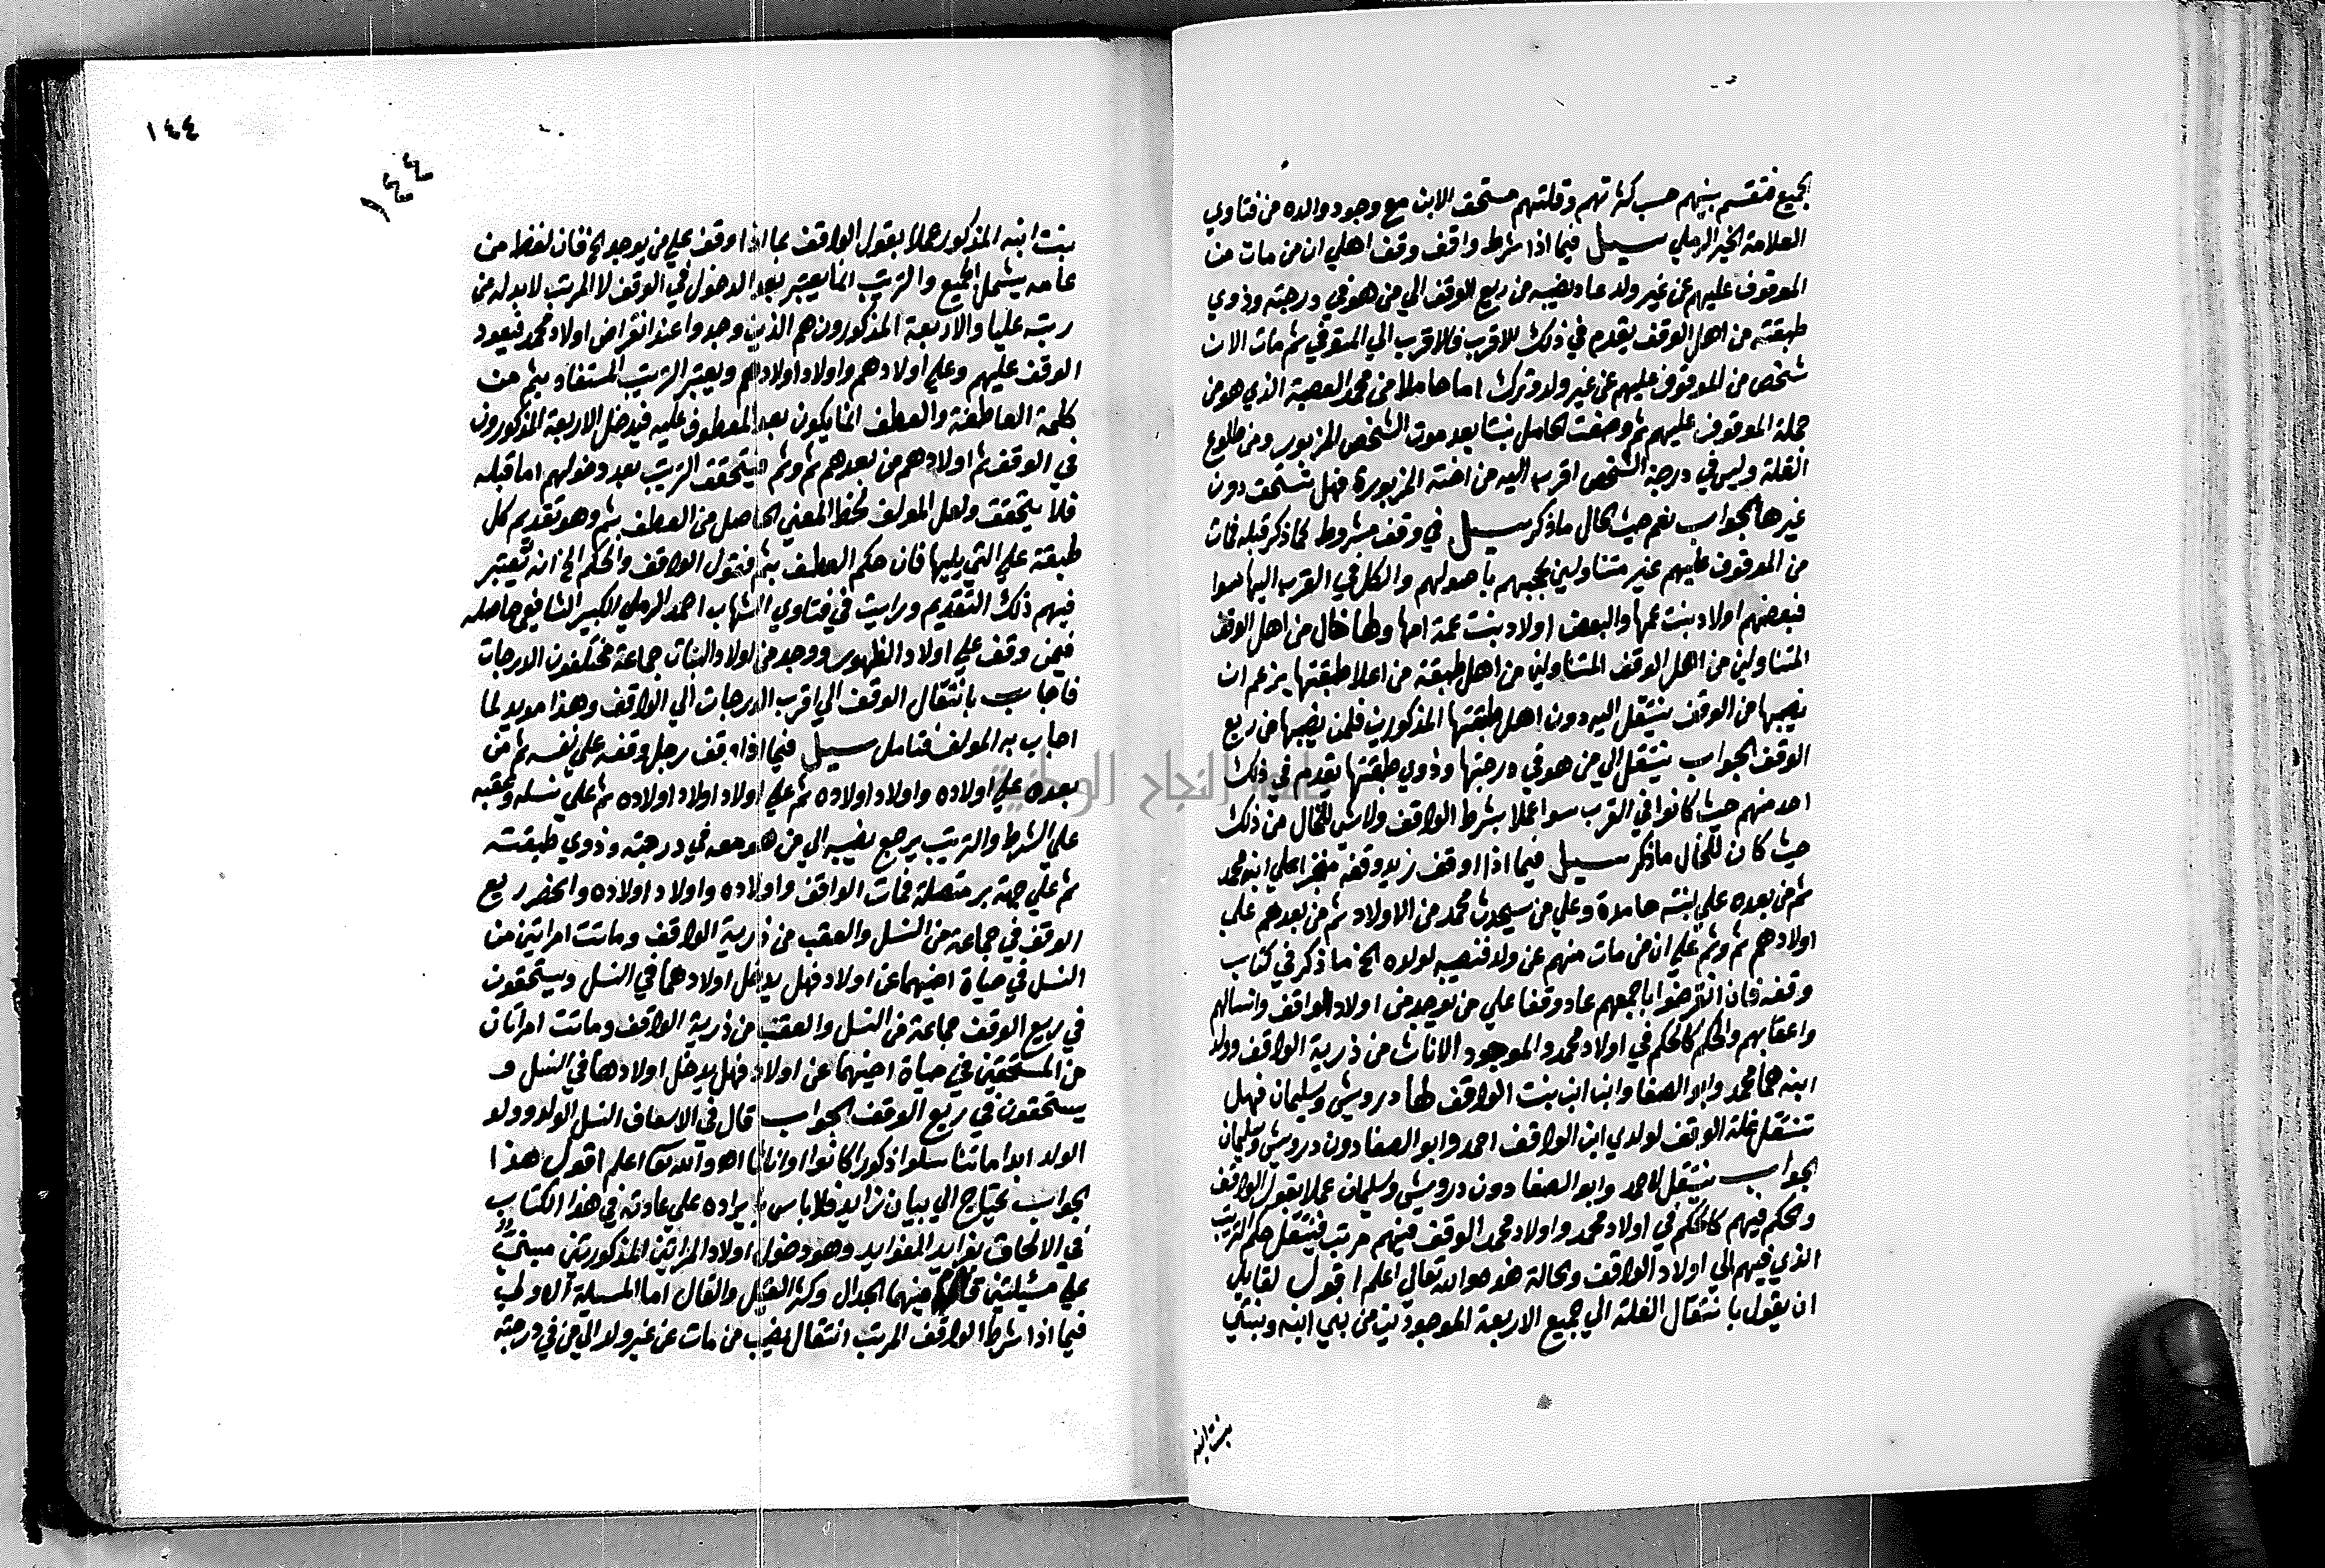 الجميع فتقسم بينهم حسب كثرتهم وقلتهم مستحق الابن مع وجود والده من فتاوي
العلامة الخير الرملي سيل فيما اذا شرط واقف وقف اهلي ان من مات من
الموقوف عليهم عن غير ولد عاد نصيبه من ريع الوقف الي من هو في درجته وذوي
طبقته من اهل الوقف يقدم في ذلك الاقرب فالاقرب الي المتوفي ثم مات الان
شخص من الموقوف عليهم عن غير ولد وترك اما حاملا من محمد العصبة الذي هو من
جملة الموقوف عليهم ثم وضعت الحامل بنتا بعد موت الشخص المزبور ومن طلوع
الغلة وليس في درجة الشخص اقرب اليه من اخته المزبورة فهل تستحق دون
غيرها الجواب نعم حيث الحال ما ذكر سيل في وقف مشروط كما ذكر قبله فمات
من الموقوف عليهم غير متناولين لحجبهم باصولهم والكل في القرب اليها سوا
فبعضهم اولاد بنت عمها والبعض اولاد بنت عمة امها ولها خال من اهل الوقف
المتناولين من اهل الوقف المتناولين من اهل طبقة من اعلا طبقتها يزعم ان
نصيبها من الوقف ينتقل اليه دون اهل طبقتها المذكورين فلمن نصيبها من ريع
الوقف الجواب ينتقل الي من هو في درجتها وذوي طبقتها يقدم في ذلك
احد منهم حيث كانوا في القرب سوا عملا بشرط الواقف ولا شي للخال من ذلك
حيث كان للخال ما ذكر سيل فيما اذا اوقف زيد وقفه منجزا علي ابنه محمد
ثم من بعده علي بنته حامدة وعلي من سيحدث لمحمد من الاولاد ثم من بعدهم علي
اولادهم ثم وثم علي ان من مات منهم عن ولد فنصيبه لولده الخ ما ذكر في كتاب
وقفه فان انقرضوا باجمعهم عاد وقفا علي من يوجد من اولاد الواقف وانسالهم
واعقابهم والحكم كالحكم في اولاد محمد والموجود الان من ذرية الواقف ولدا
ابنه هما محمد وابو الصفا وابنا ابن بنت الواقف هما درويش وسليمان فهل
تنتقل غلة الوقف لولدي ابن الواقف احمد وابو الصفا دون درويش وسليمان
الجواب ينتقل لاحمد وابو الصفا دون درويش وسليمان عملا بقول الواقف
والحكم فيهم كالحكم في اولاد محمد واولاد محمد الوقف فيهم مرتب فينتقل حكم الترتيب
الذي فيهم الي اولاد الواقف والحالة هذه والله تعالي اعلم اقول لقايل
ان يقول بانتقال الغلة الي جميع الاربعة الموجودين من بني ابنه وبنتي
بنت ابنه
١٤٤
١٤٤
بنت ابنه المذكور عملا بقول الواقف بما اذا وقف علي من يوجد الخ فان لفظ من
عامه يشمل الجميع والترتيب انما يعتبر بعد الدخول في الوقف لا المرتب لا بد له من
رتبة عليا والاربعة المذكورون هم الذين وجدوا عند انقراض اولاد محمد فيعود
الوقف عليهم وعلي اولادهم واولاد اولادهم ويعتبر الترتيب المستفاد بثم من
كلمة العاطفة والعطف انما يكون بعد المعطوف عليه فيدخل الاربعة المذكورون
في الوقف ثم اولادهم من بعدهم ثم وثم فيتحقق الترتيب بعد دخولهم اما قبله
فلا يتحقق ولعل المولف لحظ المعني الحاصل من العطف بثم وهو تقديم كل
طبقة علي التي يليها فان حكم العطف بثم فنقول الواقف والحكم الخ انه يعتبر
فيهم ذلك التقديم ورايت في فتاوي الشهاب احمد الرملي الكبير الشافعي حاصله
فيمن وقف علي اولاد الظهور ووجد من اولاد البنات جماعة مختلفون الدرجات
فاجاب بانتقال الوقف الي اقرب الدرجات الي الواقف وهذا مويد لما
اجاب به المولف فتامل سيل فيما اذا وقف رجل وقفه علي نفسه ثم من
بعده علي اولاده واولاد اولاده ثم علي اولاد اولاد اولاده ثم علي نسله وعقبه
علي الشرط والترتيب يرجع نصيبه الي من هو معه في درجته وذوي طبقته
ثم علي جهة بر متصلة فمات الواقف واولاده واولاد اولاده وانحصر ريع
الوقف في جماعة من النسل والعقب من ذرية الواقف وماتت امراتين من
النسل في حياة اخيهما عن اولاد فهل يدخل اولادهما في النسل ويستحقون
في ريع الوقف جماعة من النسل والعقب من ذرية الواقف وماتت امراتان
من المستحقين في حياة اخيهما عن اولاد فهل يدخل اولادهما في النسل و
يستحقون في ريع الوقف الجواب قال في الاسعاف النسل الولد وولد
الولد ابدا ما تناسلوا ذكورا كانوا او اناثا اه والله تعا اعلم اقول هذا
الجواب يحتاج الي بيان زايد فلا باس بايراده علي عادته في هذا الكتاب
في الالحاق بفوايد الفوايد وهو دخول اولاد المراتين المذكورتين مبني
علي مسيلتين فيهما الجدال وكثر القيل والقال اما المسيلة الاولي
فيما اذا شرط الواقف المرتب انتقال نصيب من مات عن غير ولد الي من في درجته